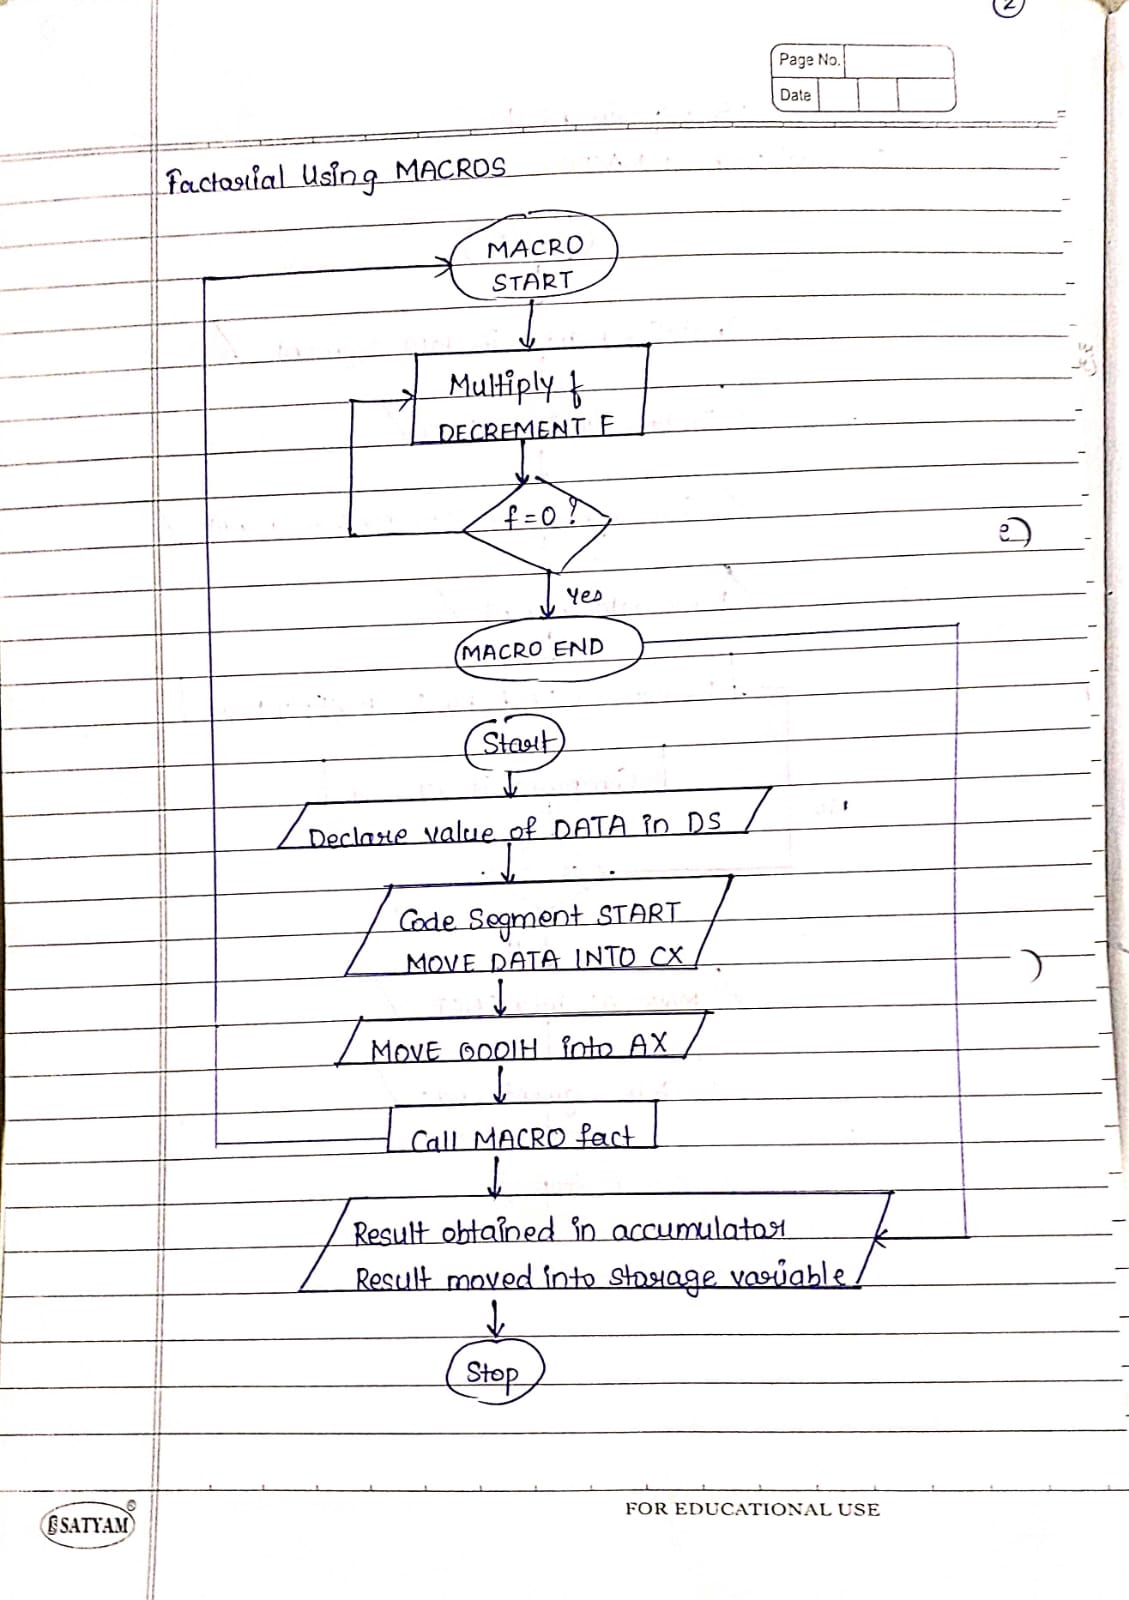 2
Page No.
Date
Factorial Using MACROS
MACRO
START
Multiply f
DECREMENT F
f=0?
Yes
MACRO END
Start
Declare value of DATA in DS
Code Segment START
MOVE DATA INTO CX
MOVE 0001H into AX
Call MACRO fact
Result obtained in accumulator
Result moved into storage variable
Stop
SATYAM
®
FOR EDUCATIONAL USE